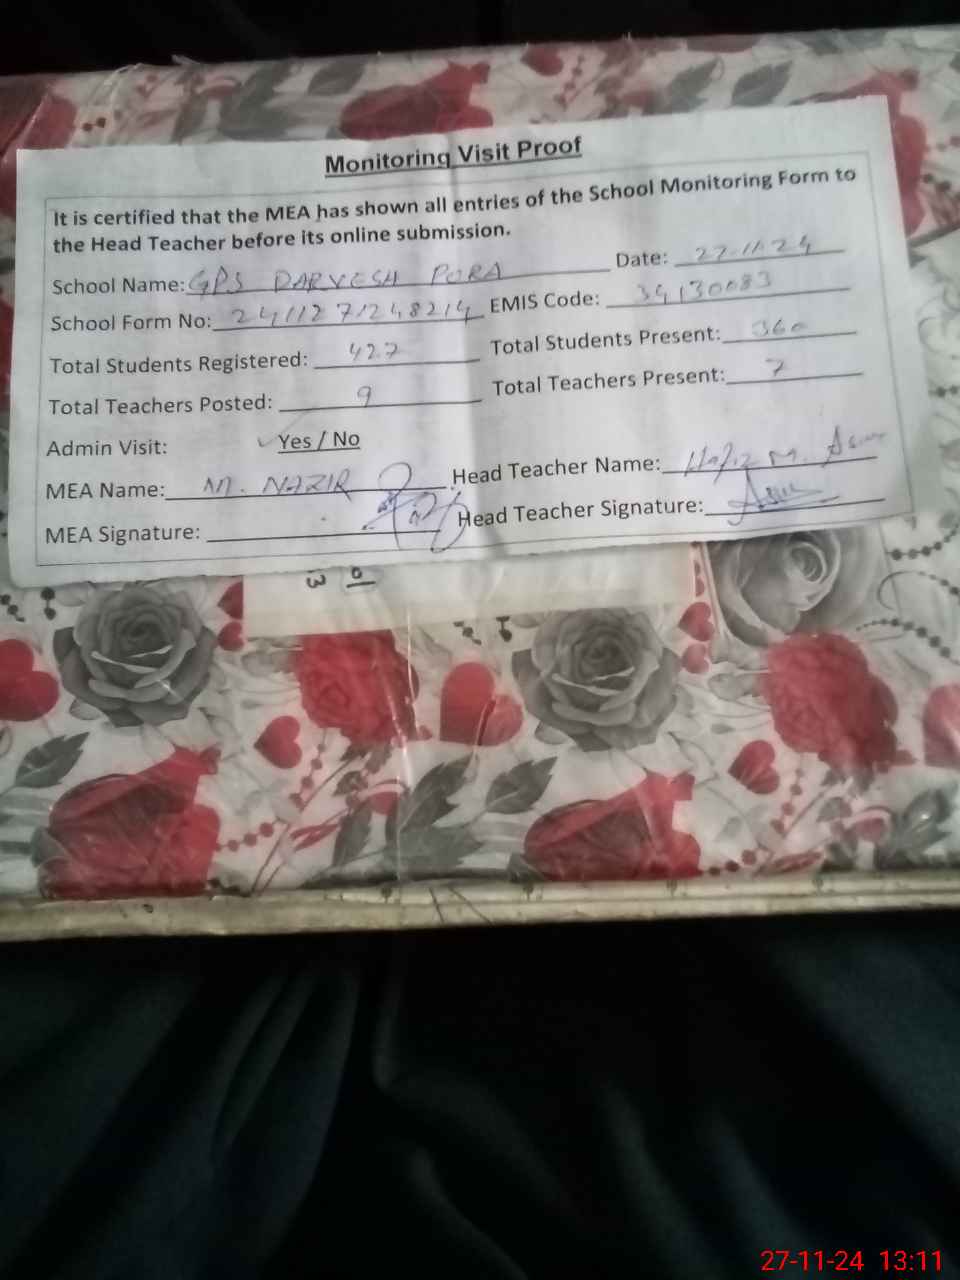 Monitoring Visit Proof
It is certified that the MEA has shown all entries of the School Monitoring Form to
the Head Teacher before its online submission.
School Name: GPS DARVESH PORA Date: 27-11-24
School Form No: 2411271248214 EMIS Code: 34130083
Total Students Registered: 427 Total Students Present: 360
Total Teachers Posted: 9 Total Teachers Present: 7
Admin Visit: Yes / No
MEA Name: M. NAZIR Head Teacher Name: Hafiz M. Asim
MEA Signature: Head Teacher Signature:
27-11-24 13:11